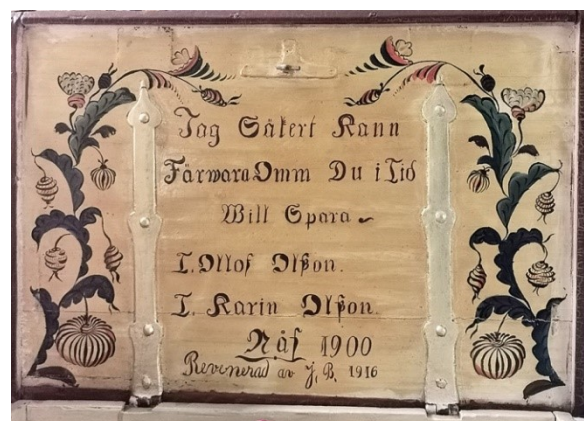 Jag Säkert Kann
Förwara Omm Du i Tid
Will Spara
I. Ollof Olßon.
I. Karin Olßon.
Näs 1900
Revenerad av J. B. 1916